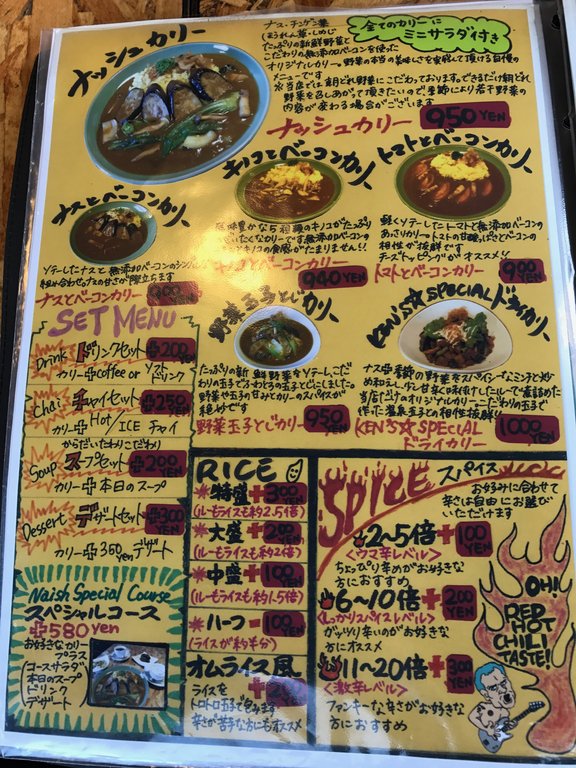 ナッシュカリー
ナス・チンゲン菜
ほうれん草・しめじ
たっぷりの新鮮野菜と
こだわりの無添加ベーコンを使った
オリジナルカリー。野菜の本当の美味しさを実感して頂ける自慢の
メニューです
※当店では朝どれ野菜にこだわっております。できるだけ朝どれ
野菜を召しあがって頂きたいので季節により若干野菜の
内容が変わる場合がございます
全てのカリーに
ミニサラダ付き
ナッシュカリー 950 YEN
キノコとベーコンカリー
風味豊かな5種類のキノコがたっぷり
キノコとベーコンカリー 940 YEN
トマトとベーコンカリー
軽くソテーしたトマトと無添加ベーコンの
あっさりカリー。トマトの甘酸っぱさとベーコンの
相性が抜群です
チーズトッピングがオススメ!!
トマトとベーコンカリー YEN
ナスとベーコンカリー
ソテーしたナスと無添加ベーコンのシンプルな
組み合せ。ナスの甘さが際立ちます
ナスとベーコンカリー
野菜玉子とじカリー
たっぷりの新鮮野菜をソテーし、こだ
わりの玉子でふわとろの玉子とじにしました。
野菜や玉子の甘みとカリーのスパイスが
絶妙です
野菜玉子とじカリー 950 YEN
KEN'S☆SPECIALドライカリー
ナス+季節の野菜をスパイシーなミンチと炒
め和えし、少し甘辛く味付けしたルーで煮詰めた
当店だけのオリジナルカリー。こだわりの玉子で
作った温泉玉子との相性抜群!!
KEN'S☆SPECIAL
ドライカリー 1000 YEN
SET MENU
Drink ドリンクセット +200 YEN
カリー+coffee or ソフトドリンク
Chai チャイセット +250 YEN
カリー+Hot/ICE チャイ
からだいたわりこだわり
Soup スープセット +200 YEN
カリー+本日のスープ
Dessert デザートセット +300 YEN
カリー+360yenデザート
Naish Special Course
スペシャルコース
+580yen
お好きなカリー
プラス
(コースサラダ
本日のスープ
ドリンク
デザート
RICE
特盛+300 YEN
(ルーもライスも約2.5倍)
大盛+200 YEN
(ルーもライスも約2倍)
中盛+100 YEN
(ルーもライスも約1.5倍)
ハーフ-100 YEN
(ライスが約半分)
オムライス風
ライスを
トロトロ玉子で包みます
辛さが苦手な方にもオススメ
SPICE スパイス
お好みに合わせて
辛さは自由にお選び
いただけます
2~5倍+100 YEN
<ウマ辛レベル>
ちょっぴり辛めがお好きな
方におすすめ
6~10倍+200 YEN
<しっかりスパイスレベル>
ガッツリ辛いのがお好きな
方にオススメ
11~20倍+300 YEN
<激辛レベル>
ファンキーな辛さがお好きな
方におすすめ
OH!
RED
HOT
CHILI
TASTE!